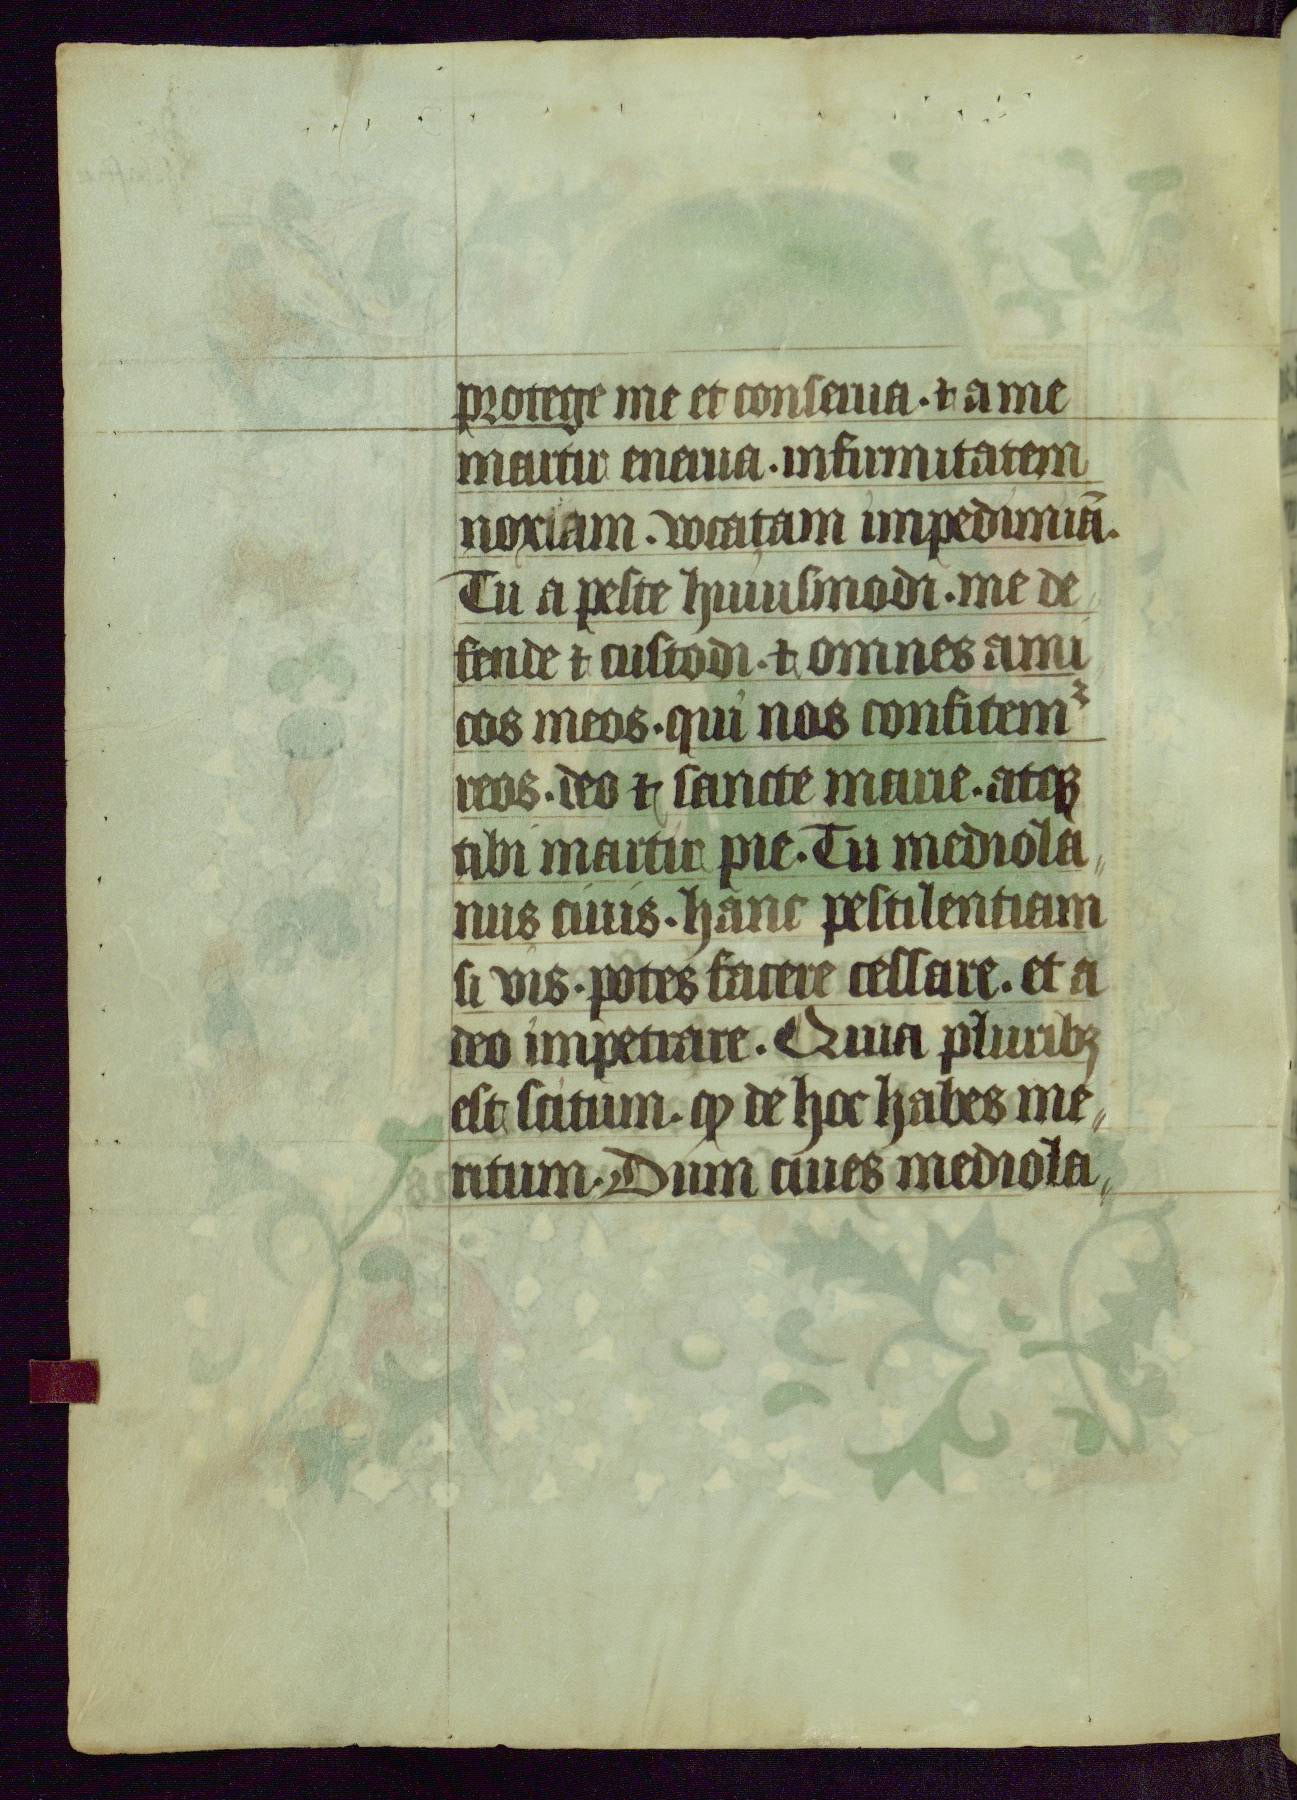 protege me et conserua. ⁊ a me
martir enerua. infirmitatem
noxiam. vocatam impedimiā.
Tu a peste huiusmodi. me de
fende ⁊ custodi. ⁊ omnes ami
cos meos. qui nos confitemᷣ
reos. deo ⁊ sancte marie. atqꝫ
tibi martir pie. Tu mediola〃
nus ciuis. hanc pestilentiam
si vis. potes facere cessare. et a
deo impetrare. Quia pluribꝫ
est scitum. ꝙ de hoc habes me〃
ritum. Dum ciues mediola〃